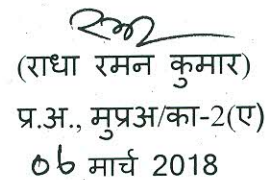 (राधा रमन कुमार)
प्र.अ., मुप्रअ/का-2(ए)
06 मार्च 2018